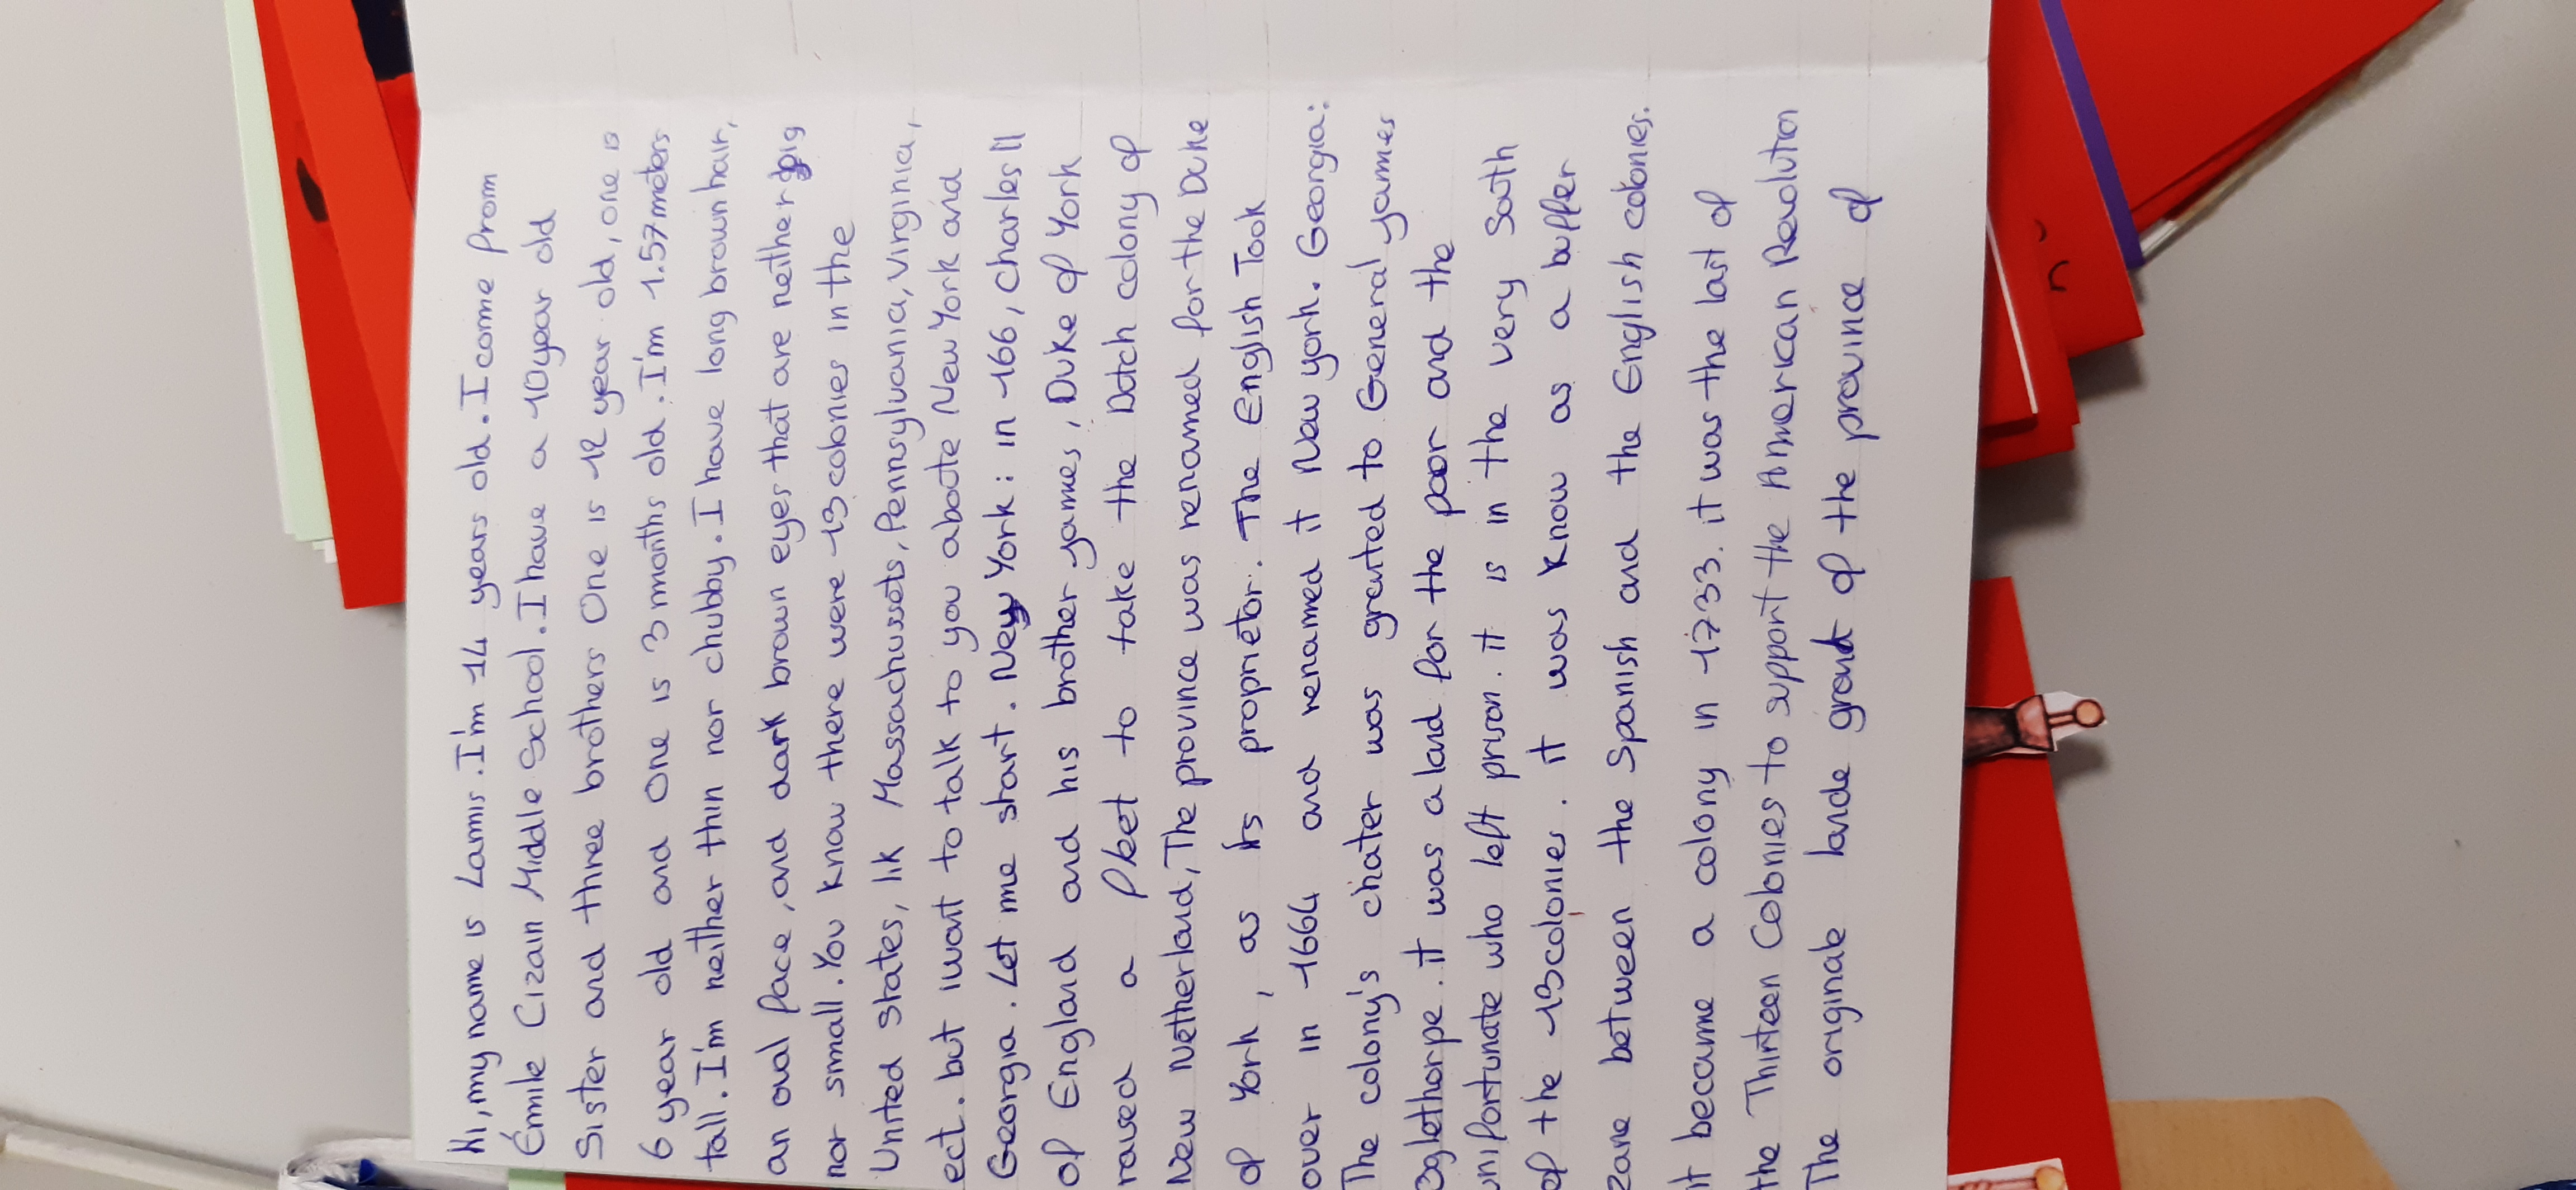 Hi, my name is Lamis. I'm 14 years old. I come from
Émile Cizain Middle School. I have a 10 year old
Sister and three brothers One is 12 year old, one is
6 year old and One is 3 months old. I'm 1.57 meters
tall. I'm neither thin nor chubby. I have long brown hair,
an oval face, and dark brown eyes that are neither big
nor small. You know there were 13 colonies in the
United States, lik Massachussets, Pennsylvania, Virginia,
ect. but i want to talk to you aboute New York and
Georgia. Let me start. New York: in 166, Charles II
of England and his brother yames, Duke of York
raised a fleet to take the Dutch colony of
New Netherland, The province was renamed for the Duke
of York, as its proprietor. The English Took
over in 1664 and renamed it New york. Georgia:
The colony's chater was greanted to General yames
Oglethorpe. it was a land for the poor and the
unifortunate who left prison. it is in the very South
of the 13 colonies. it was know as a buffer
zone between the Spanish and the English colonies.
it became a colony in 1733. it was the last of
the Thirteen Colonies to support the American Revolution
The originale lande grant of the province of